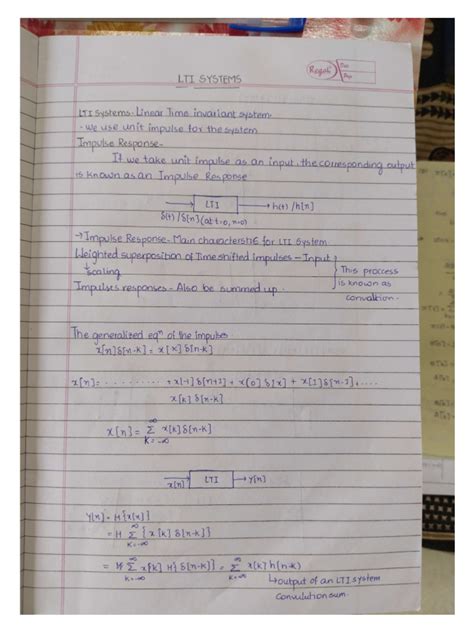 LTI SYSTEMS
Regal
LTI Systems- Linear Time invariant system
- we use unit impulse for the system
Impulse Response-
If we take unit impulse as an input, the corresponding output
is known as an Impulse Response
LTI → h(t) / h[n]
δ(t) / δ[n] (at t=0, n=0)
→ Impulse Response- Main characteristic for LTI System
Weighted superposition of Time shifted impulses - Input
↓ scaling
This proccess
is known as
Impulses responses - Also be summed up.
The generalized eqⁿ of the impulses.
x[n] δ[n-k] = x[k] δ[n-k]
x[n] = ......... + x[-1] δ[n+1] + x[0] δ[n] + x[1] δ[n-1] , ....
x[k] δ[n-k]
x[n] = ∞ Σ k=-∞ x[k] δ[n-k]
x[n] → LTI → y[n]
y[n] = H{x[n]}
= H ∞ Σ k=-∞ { x[k] δ[n-k] }
= ∞ Σ k=-∞ x[k] H{ δ[n-k] } = ∞ Σ k=-∞ x[k] h[n-k]
↳ output of an LTI system